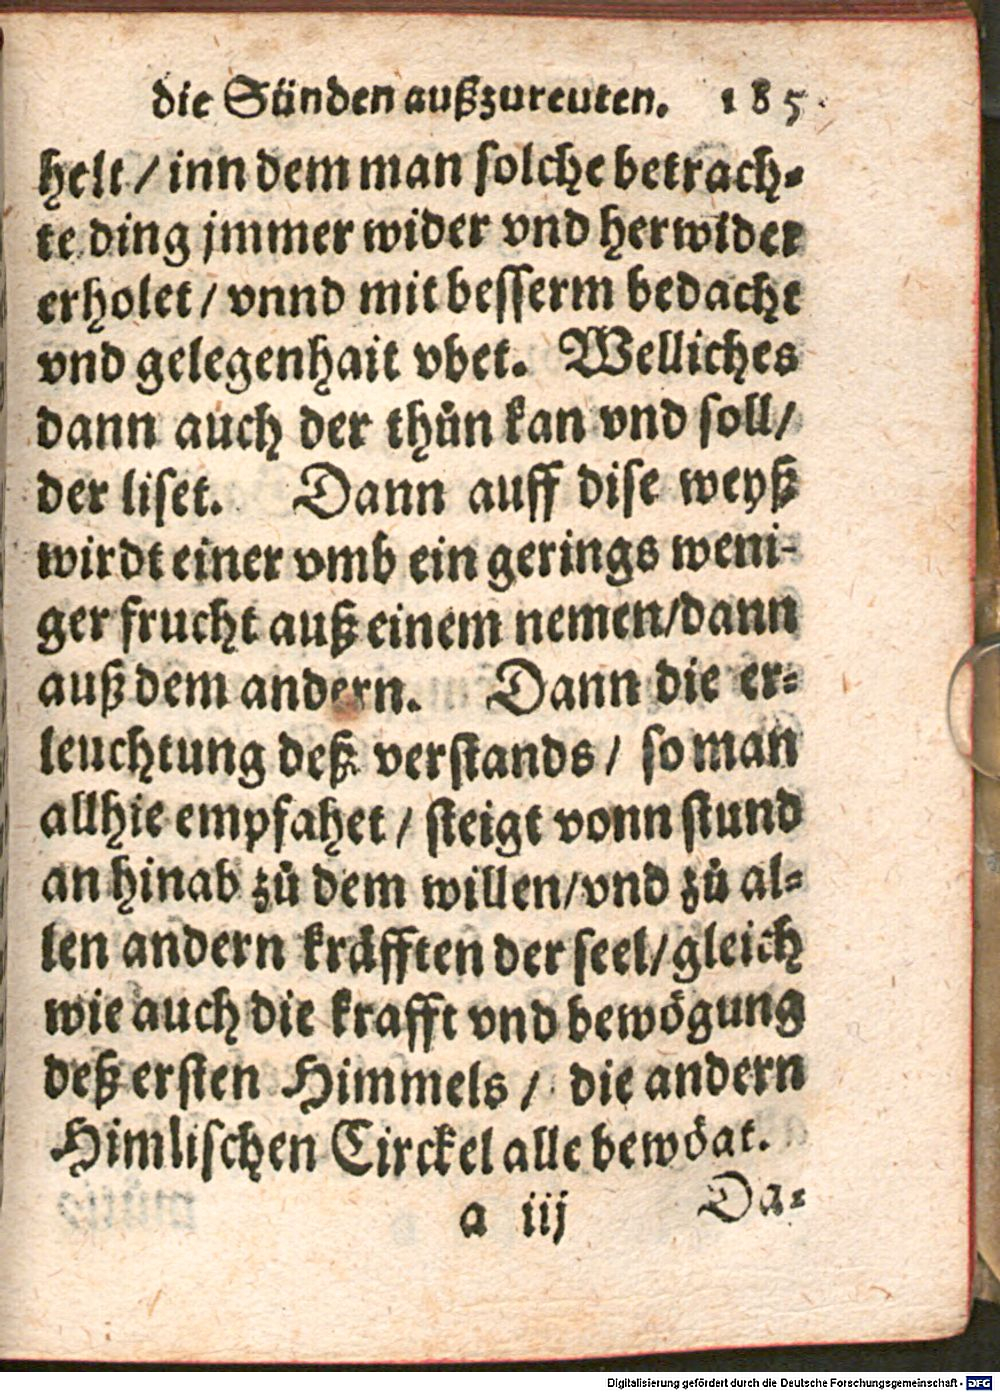 die Sünden außzureuten. 185
helt / inn dem man solche betrach-
te ding jmmer wider vnd herwider
erholet / vnnd mit besserm bedacht
vnd gelegenhait vbet. Welliches
dann auch der thůn kan vnd soll /
der liset. Dann auff dise weyß
wirdt einer vmb ein gerings weni-
ger frucht auß einem nemen / dann
auß dem andern. Dann die er-
leuchtung deß verstands / so man
allhie empfahet / steigt vonn stund
an hinab zů dem willen / vnd zů al-
len andern kräfften der seel / gleich
wie auch die krafft vnd bewögung
deß ersten Himmels / die andern
Himlischen Circkel alle bewögt.
a iij Da-
Digitalisierung gefördert durch die Deutsche Forschungsgemeinschaft - DFG